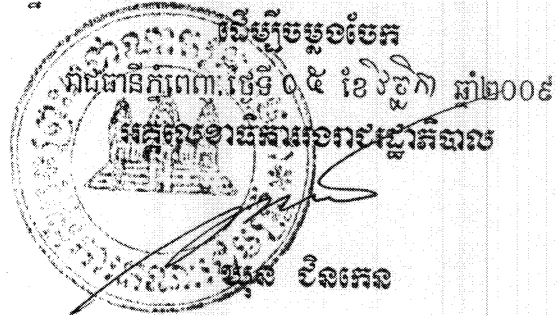 ដើម្បីចម្លងចែក
រាជធានីភ្នំពេញ, ថ្ងៃទី ០៥ ខែ វិច្ឆិកា ឆ្នាំ២០០៩
អគ្គលេខាធិការរងរាជរដ្ឋាភិបាល
ឃុន ជិនកេន